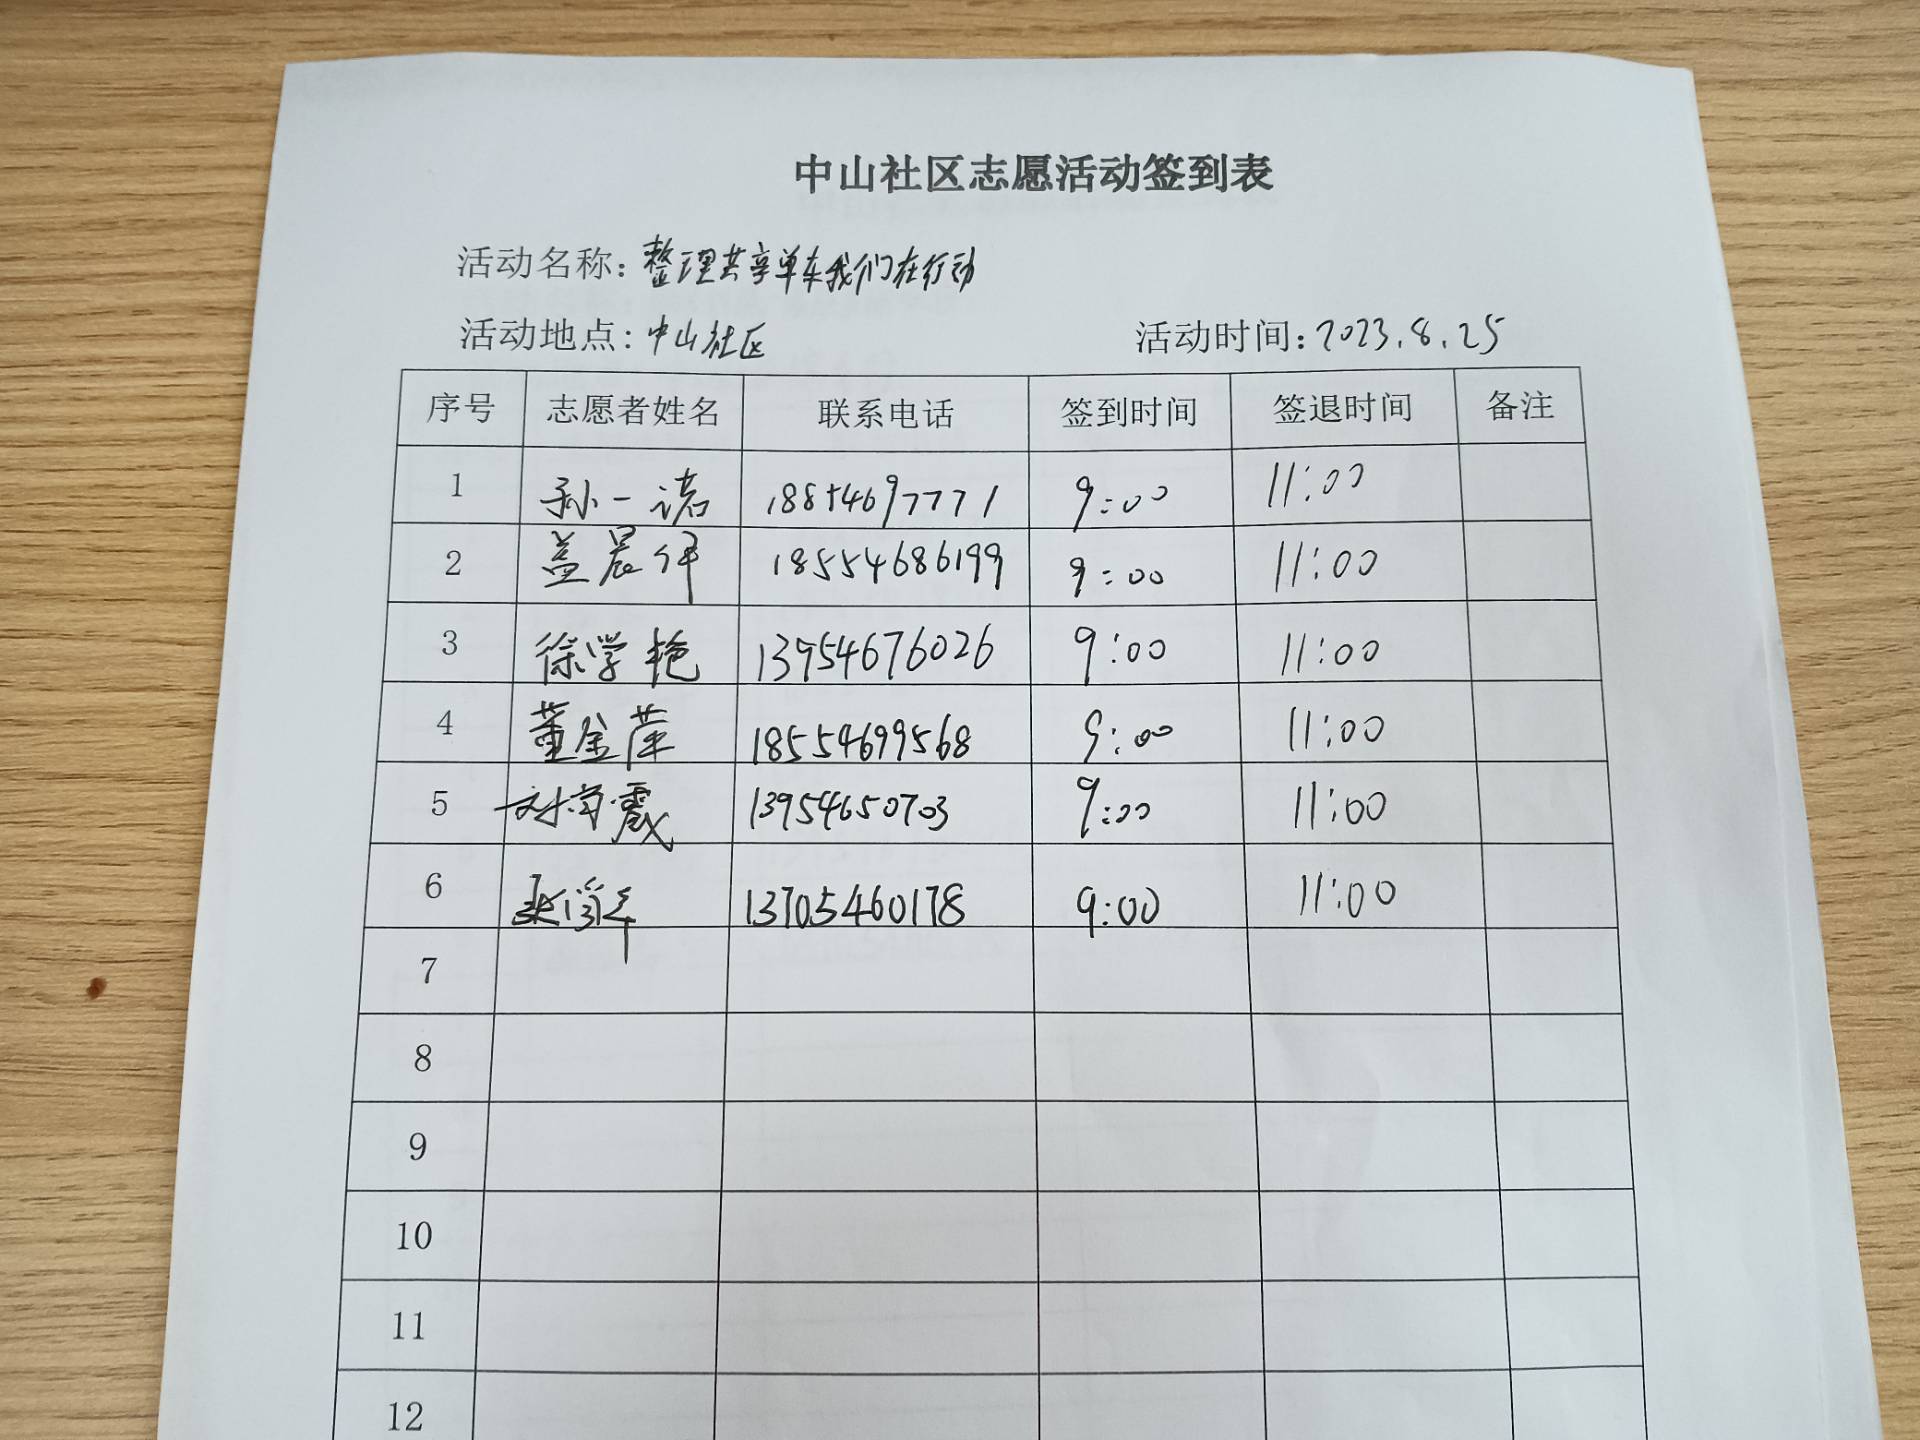 中山社区志愿活动签到表
活动名称：整理共享单车我们在行动
活动地点：中山社区 活动时间：2023.8.25
序号 志愿者姓名 联系电话 签到时间 签退时间 备注
1 孙一诺 18854697771 9:00 11:00
2 盖晨伊 18554686199 9:00 11:00
3 徐学艳 13954676026 9:00 11:00
4 董金萍 18554699568 9:00 11:00
5 13954650703 9:00 11:00
6 13705460178 9:00 11:00
7
8
9
10
11
12